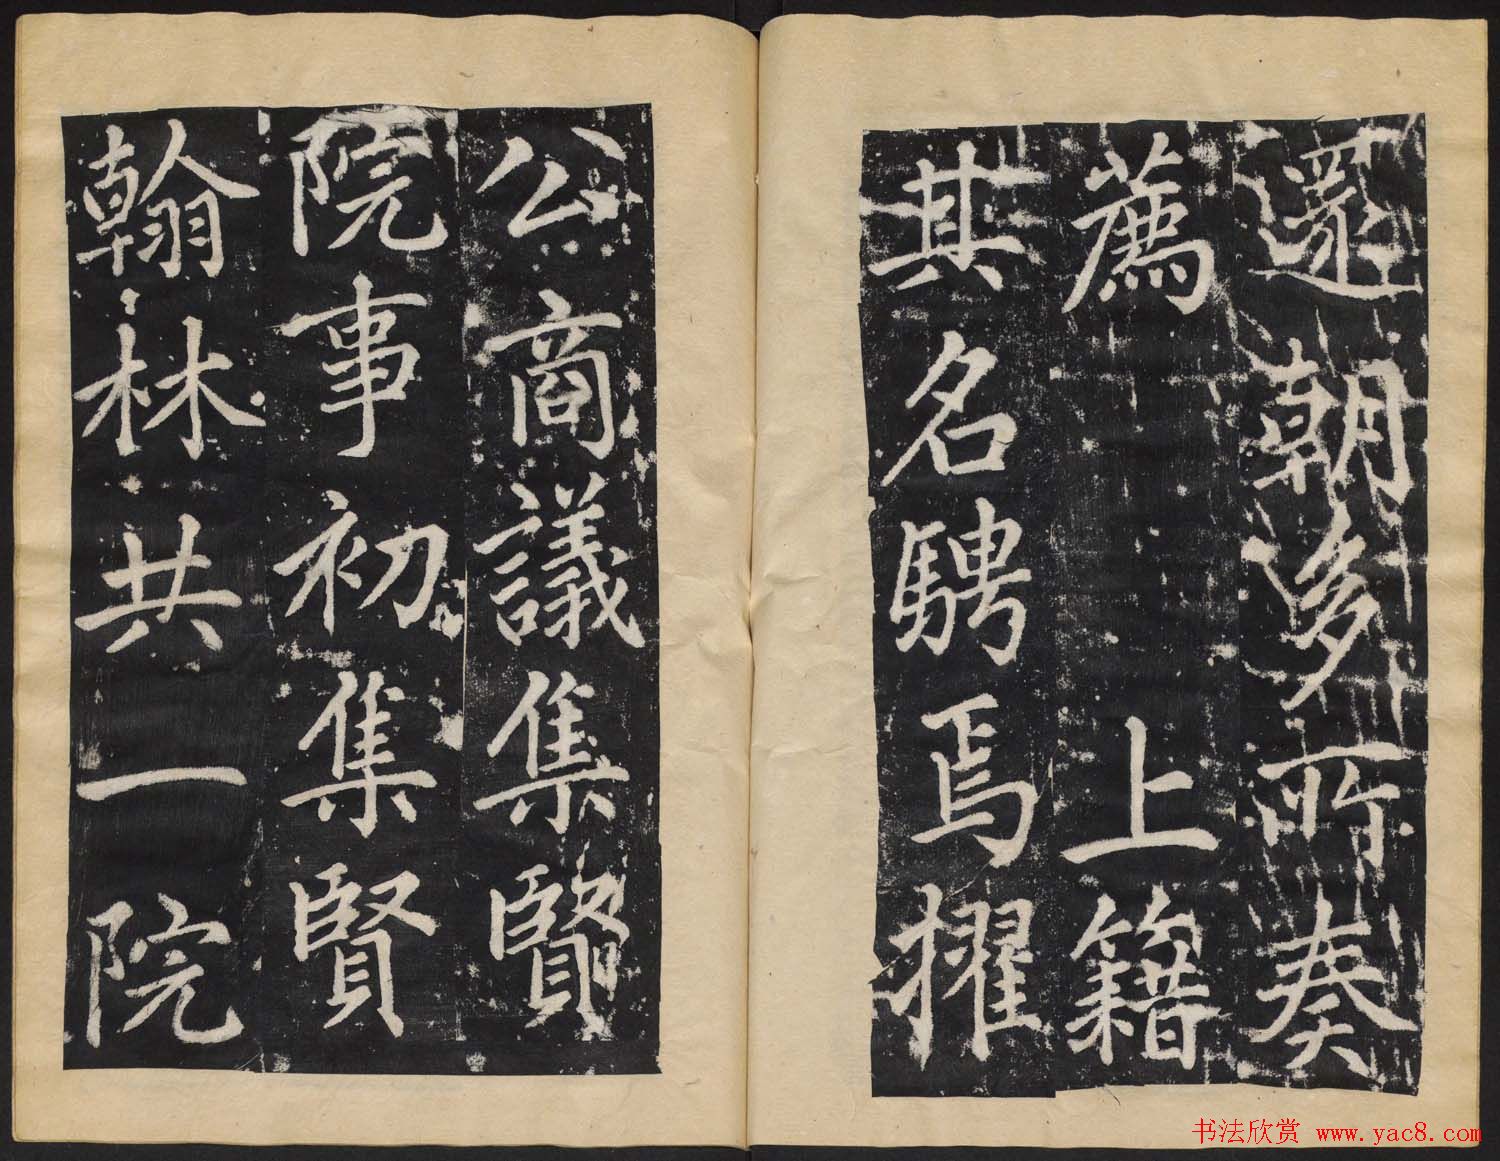 還朝多所奏
薦上籍
其名騁焉擢
公商議集賢
院事初集賢
翰林共一院
书法欣赏 www.yac8.com